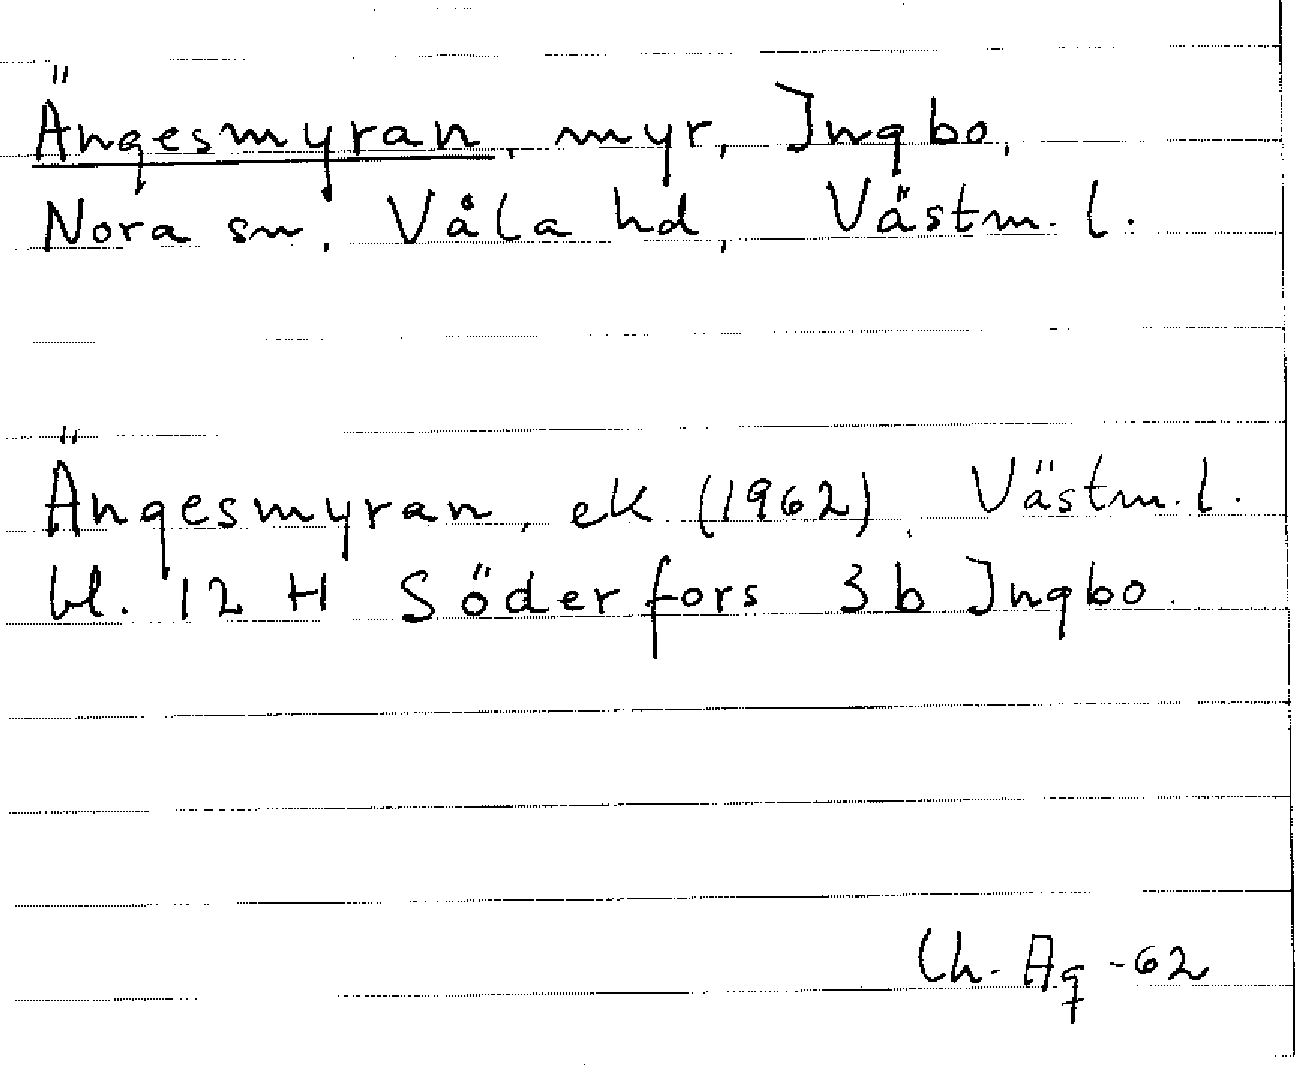 Ängesmyran, myr, Ingbo,
Nora sn, Våla hd, Västm. l.
Ängesmyran, ek (1962), Västm. l.
bl. 12 H Söderfors 3b Ingbo.
Ch. Ag -62